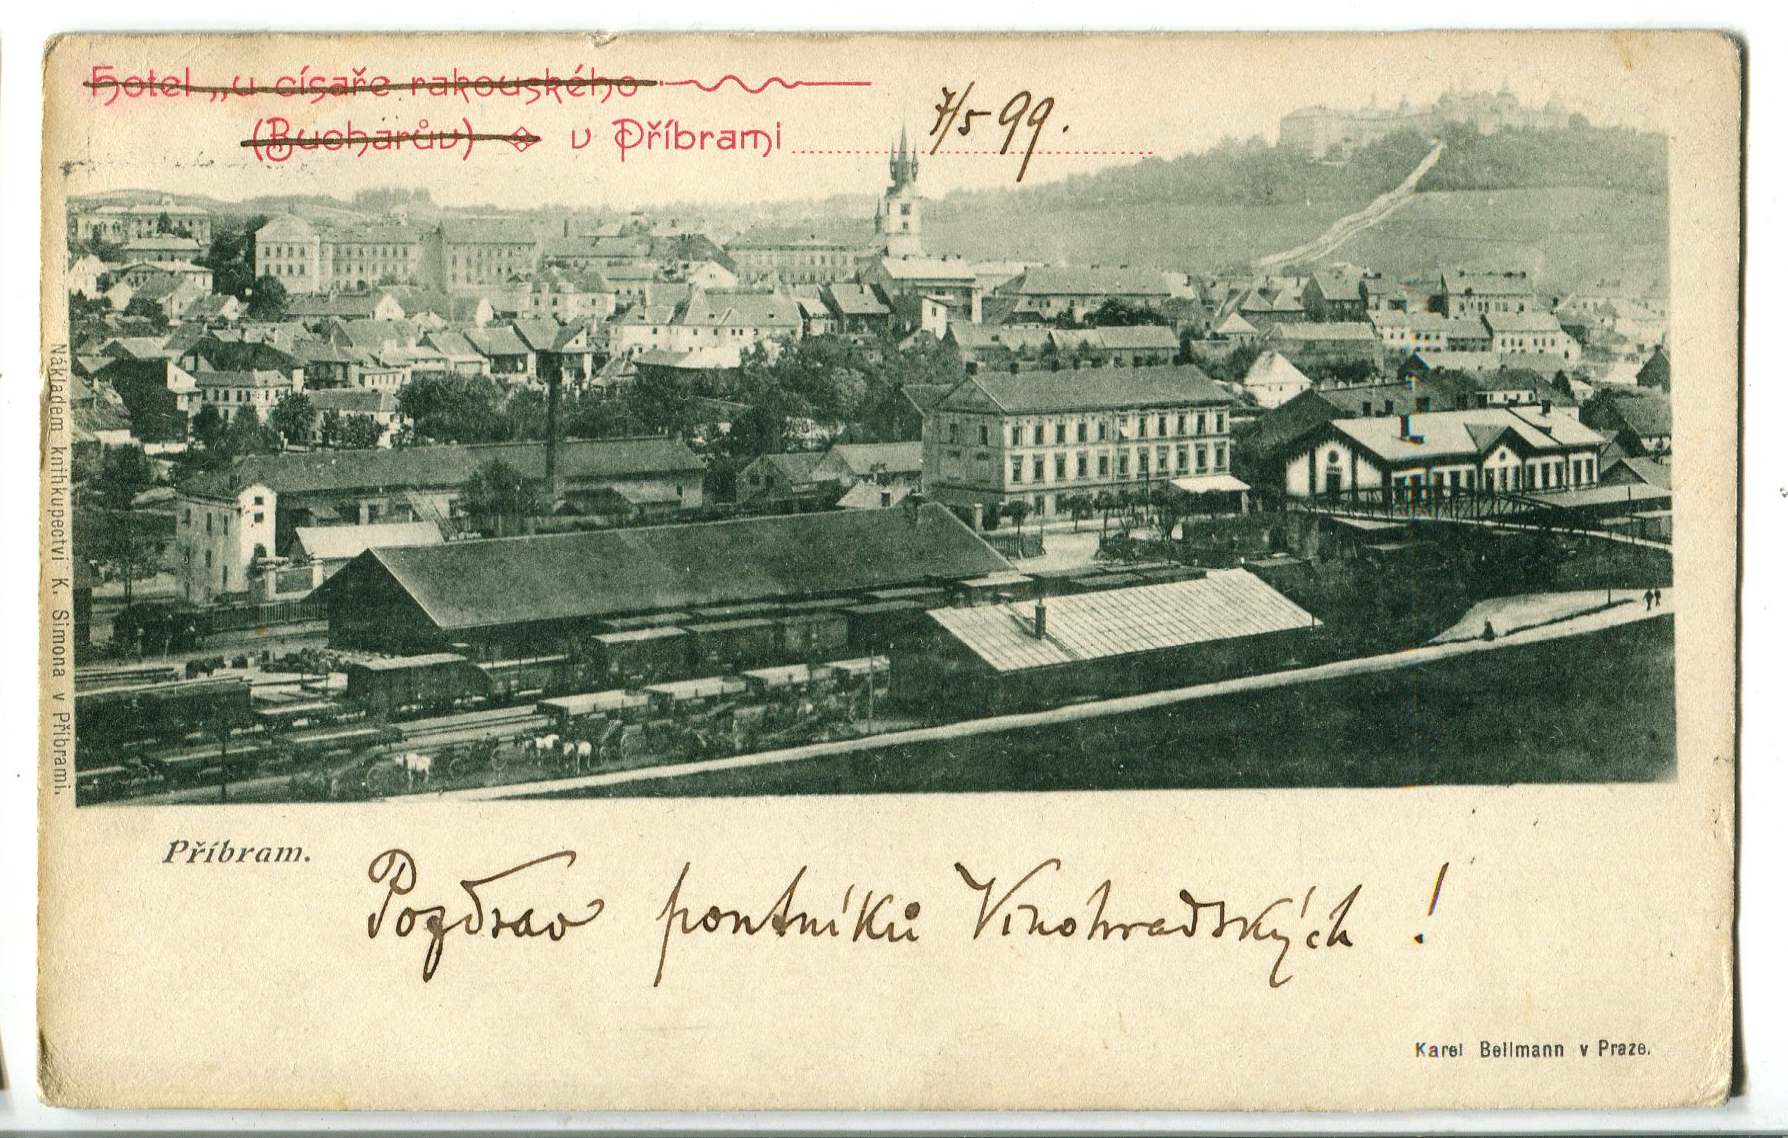 Hotel „u císaře rakouského
(Bucharův) v Příbrami 7/5 99.
Nákladem knihkupectví K. Simona v Příbrami.
Příbram.
Pozdrav poutníků Vinohradských!
Karel Bellmann v Praze.